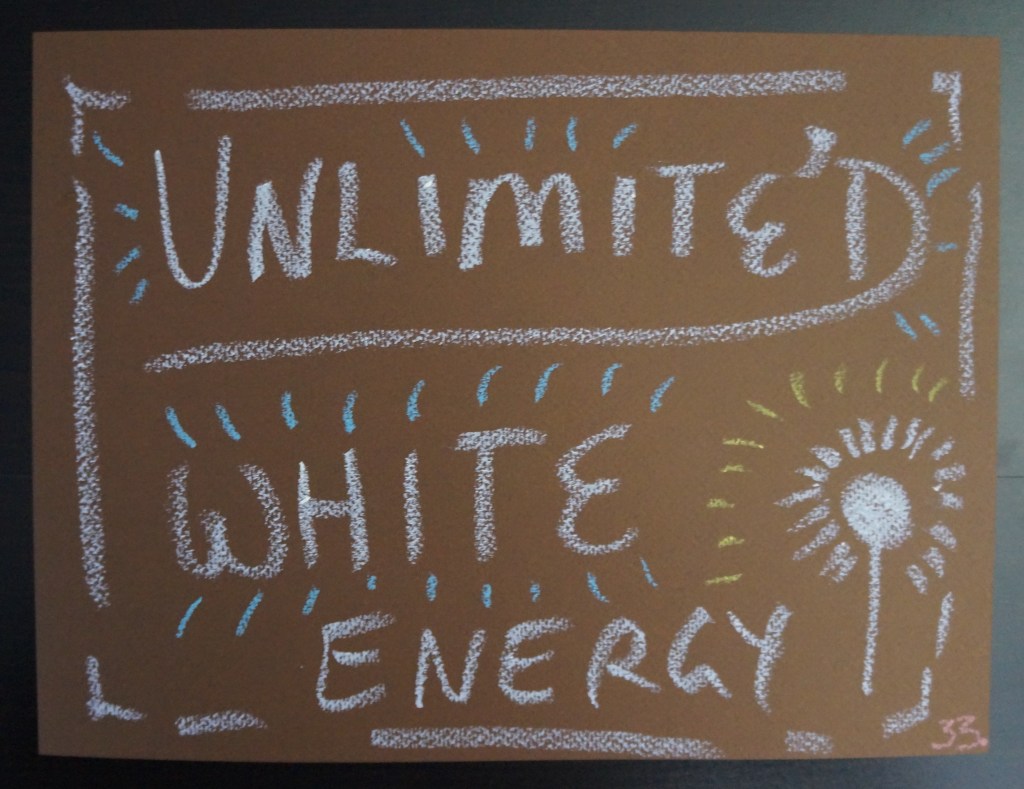 UNLIMITED
WHITE
ENERGY
33.